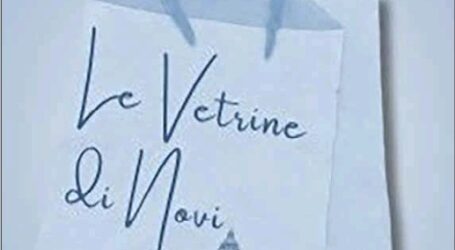 Le Vetrine
di Novi